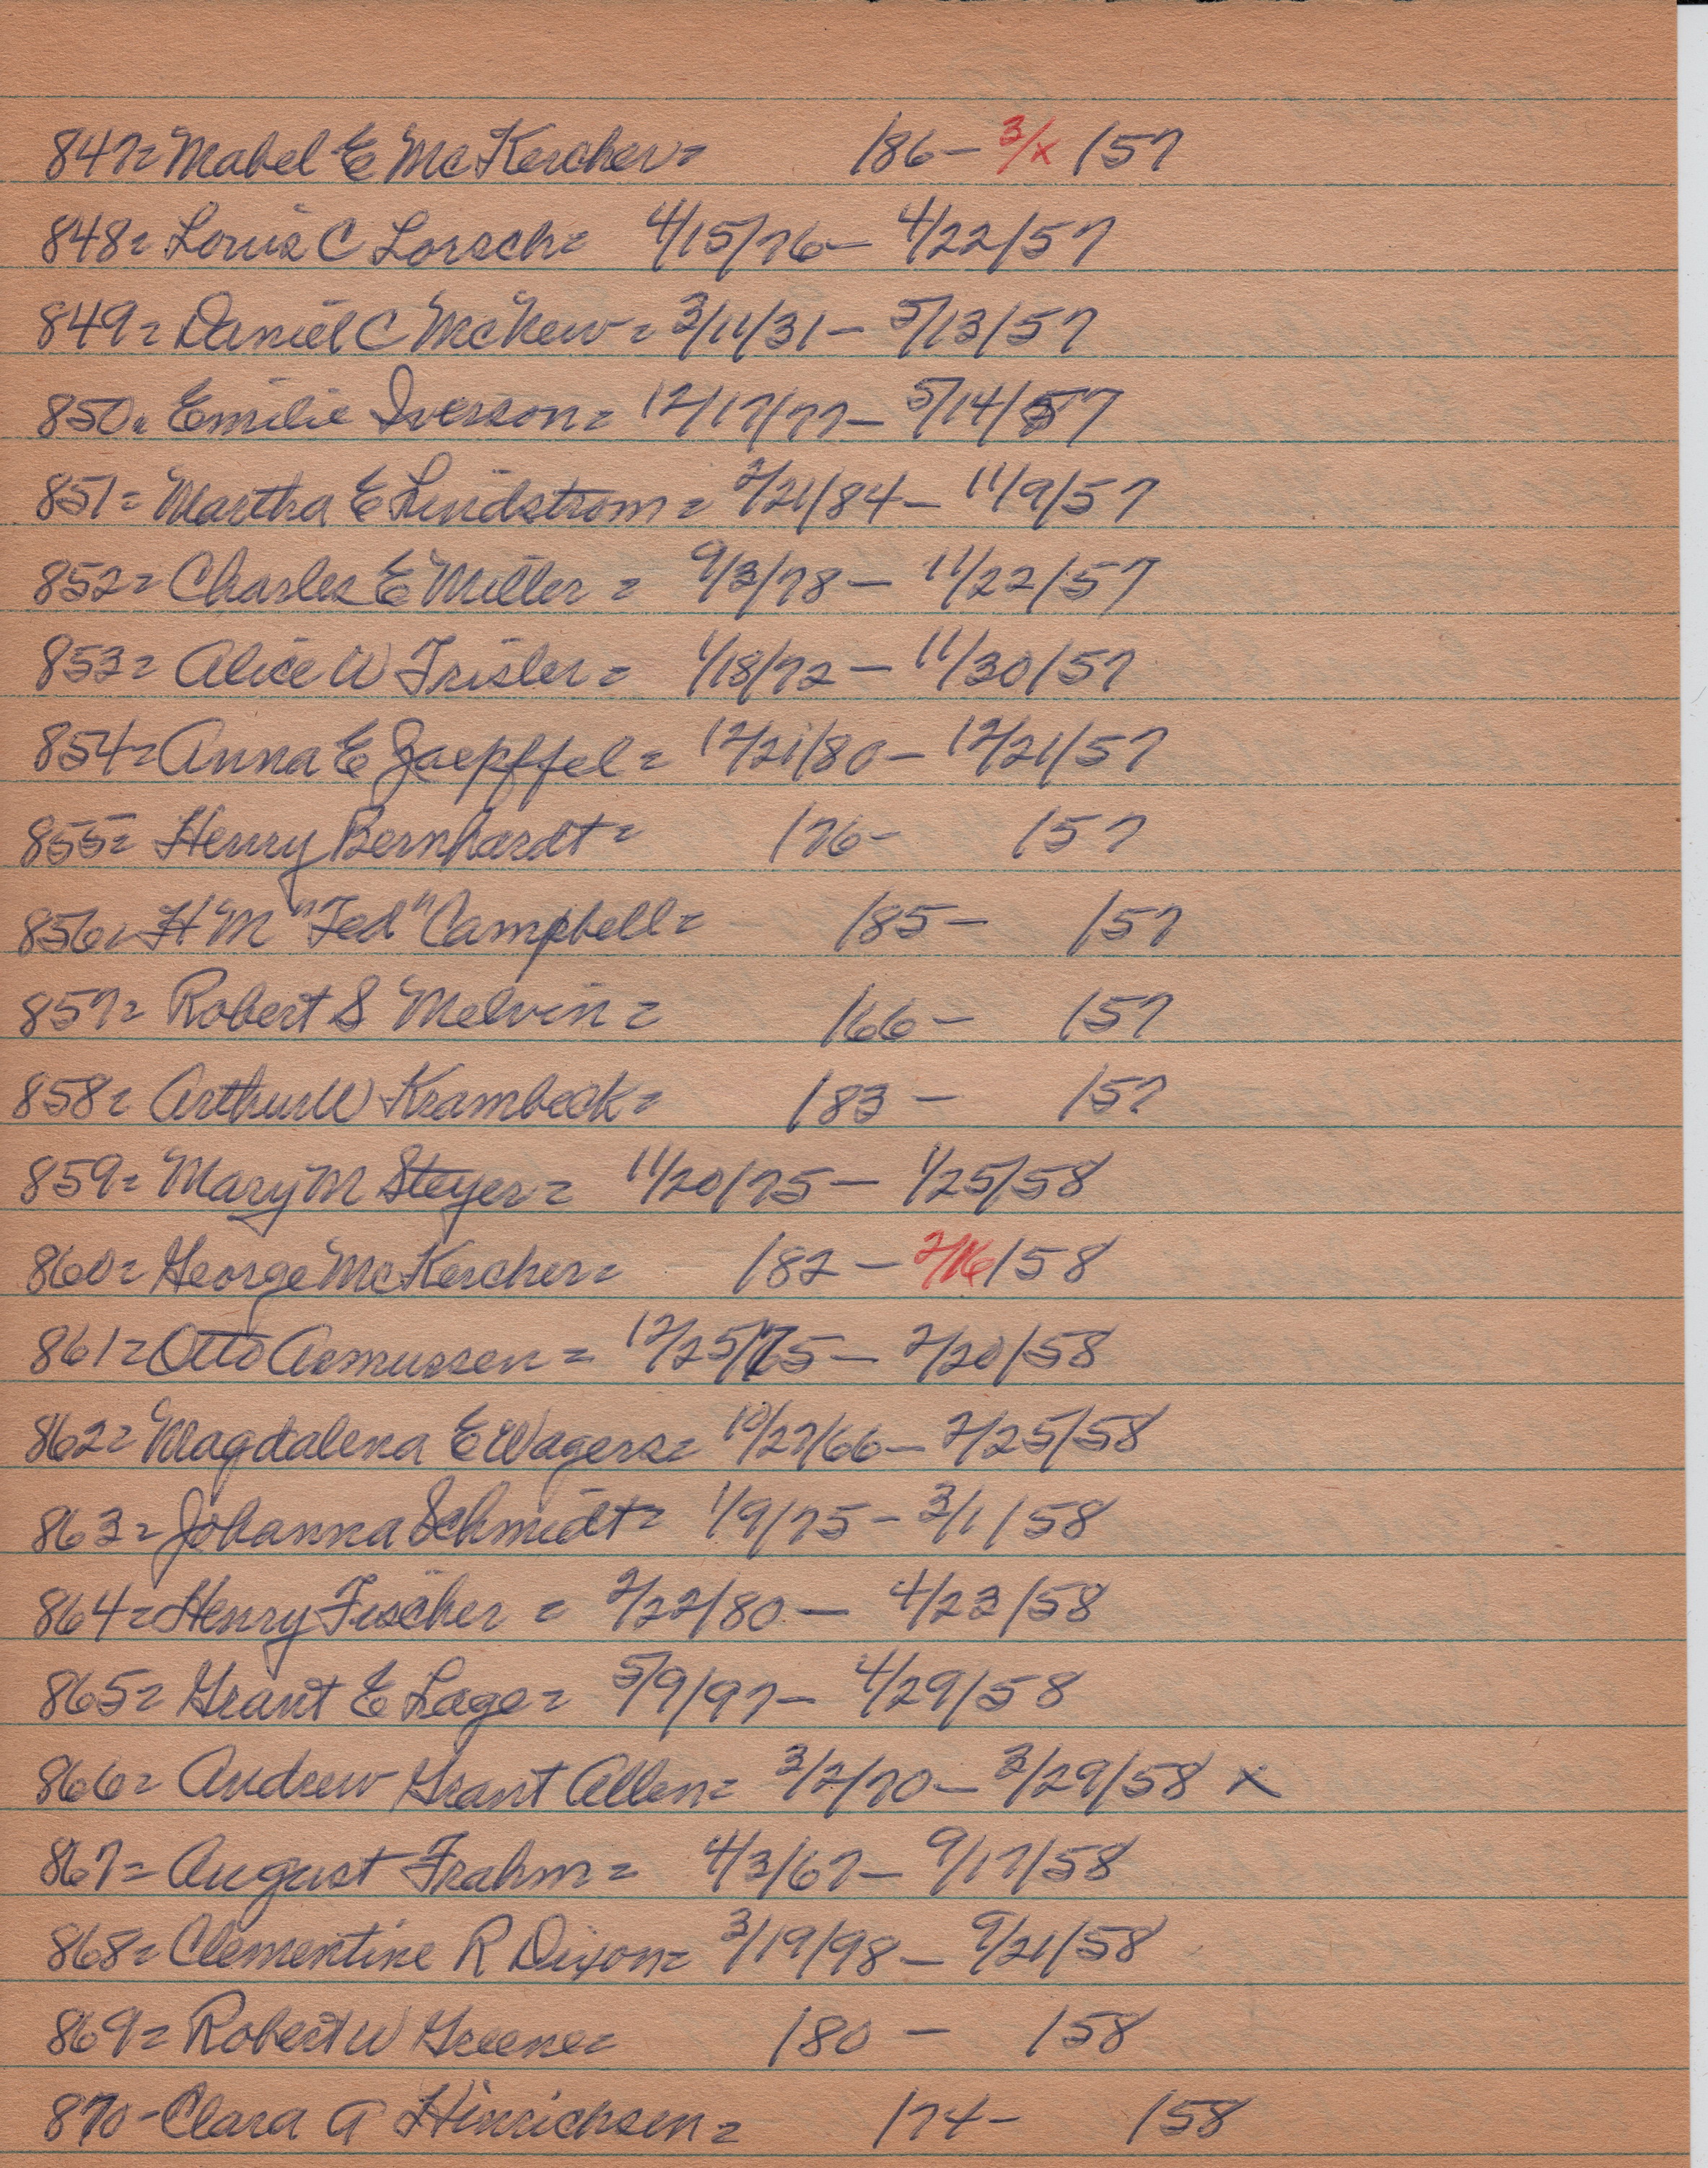 847= Mabel E McKercher= /86- 3/x /57
848= Louis C Lorsch= 4/15/76- 4/22/57
849= Daniel C McNew= 3/11/31- 5/13/57
850= Emilie Iverson= 12/17/77- 5/14/57
851= Martha E Lindstrom= 2/21/84- 11/9/57
852= Charles E Miller= 9/3/78- 11/22/57
853= Alice W Frisler= 1/18/72- 11/30/57
854= Anna E Zaepffel= 12/21/80- 12/21/57
855= Henry Bernhardt= /76- /57
856= H M "Ted" Campbell= /85- /57
857= Robert S Melvin= /66- /57
858= Arthur W Krambeck= /83- /57
859= Mary M Steyer= 11/20/75- 1/25/58
860= George McKercher= /82- 2/16/58
861= Otto Asmussen= 12/25/75- 2/20/58
862= Magdalena E Wagers= 10/27/66- 2/25/58
863= Johanna Schmidt= 1/9/75- 3/1/58
864= Henry Fischer= 2/22/80- 4/23/58
865= Grant E Lage= 5/9/97- 4/29/58
866= Andrew Grant Allen= 3/2/70- 3/29/58 x
867= August Frahm= 4/3/67- 9/17/58
868= Clementine R Dixon= 3/19/98- 9/21/58
869= Robert W Greene= /80- /58
870- Clara A Hinrichsen= /74- /58